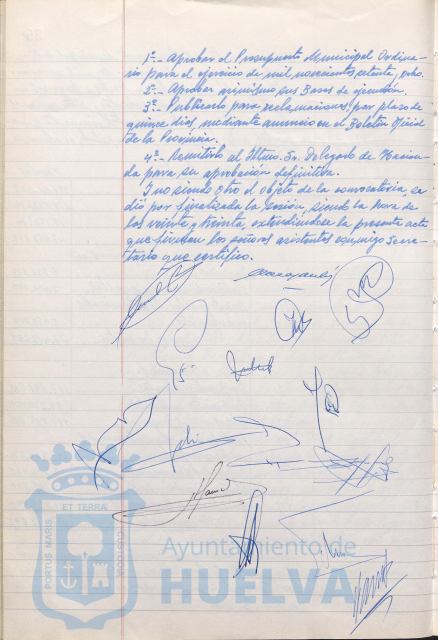 1º.- Aprobar el Presupuesto Municipal Ordina-
rio para el ejercicio de mil novecientos setenta y ocho.
2º.- Aprobar asimismo sus Bases de ejecución.
3º.- Publicarlo para reclamaciones, por plazo de
quince días, mediante anuncio en el Boletín Oficial
de la Provincia.
4º.- Remitirlo al Iltmo. Sr. Delegado de Hacien-
da para su aprobación definitiva.
Y no siendo otro el objeto de la convocatoria, se
dió por finalizada la sesión, siendo la hora de
las veinte y treinta, extendiéndose la presente acta
que firman los señores asistentes conmigo Secre-
tario que certifico.
ET TERRA
PORTUS MARIS
CUSTODIA
Ayuntamiento de
HUELVA